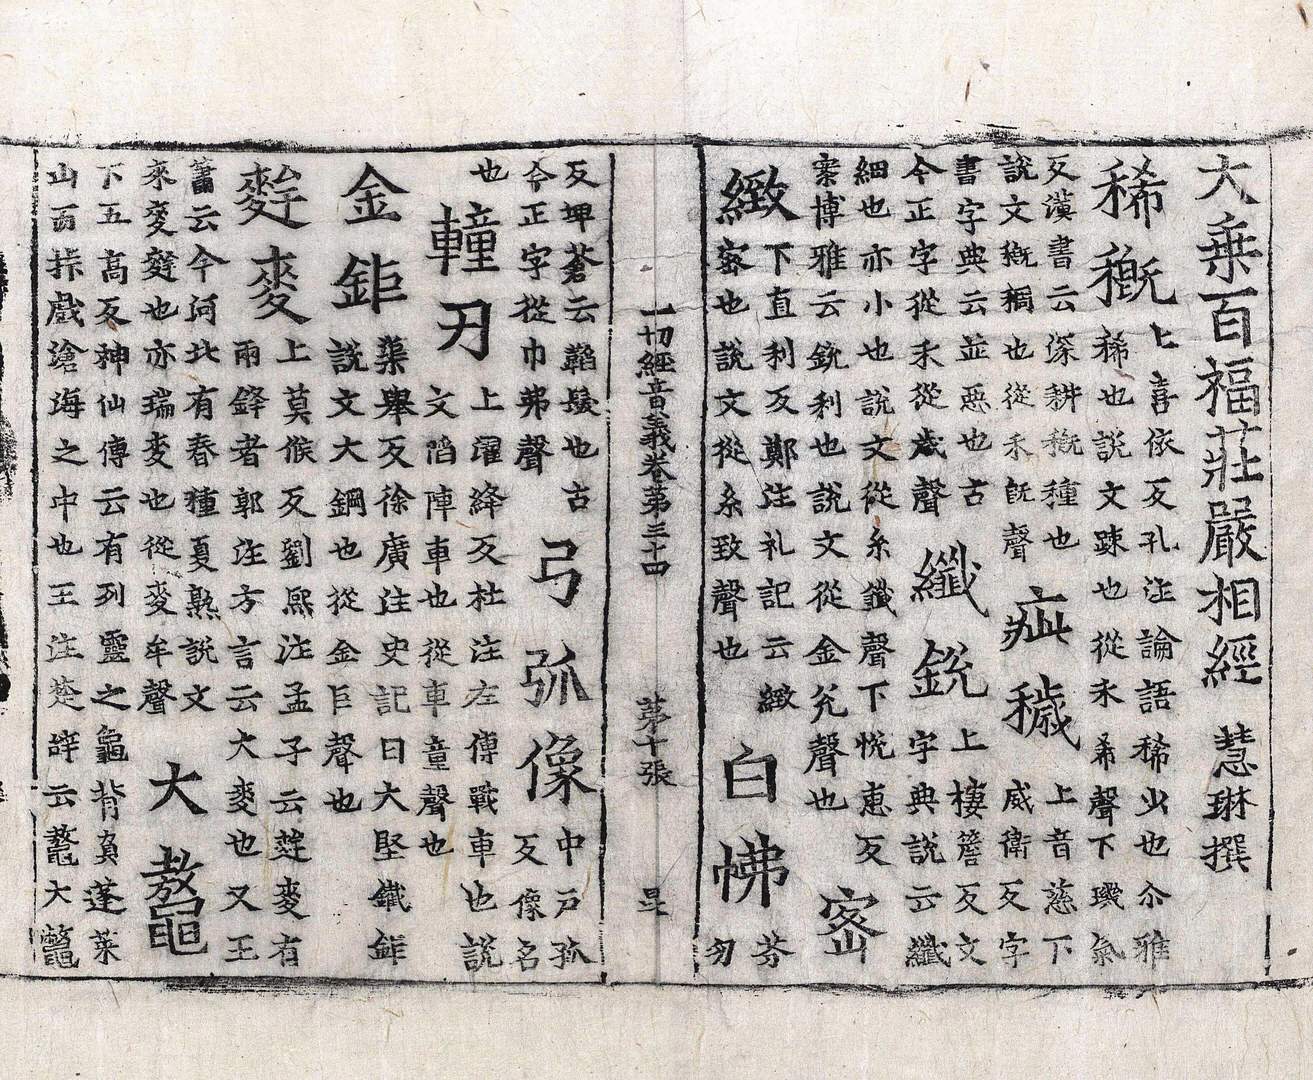 大乗百福莊嚴相經 慧琳撰
稀穊
上喜依反孔注論語稀少也尒雅
稀也說文踈也從禾希聲下璣氣
反漢書云深耕穊種也
說文穊稠也從禾旣聲
疵穢
上音慈下
威衛反字
書字典云並惡也古
今正字從禾從歲聲
纖銳
上㯹簷反文
字典說云纖
細也亦小也說文從糸韱聲下恱恵反
案博雅云銳利也說文從金兊聲也
密
緻
下直利反鄭注礼記云緻
密也說文從糸致聲也
白怫
芬
勿
一切經音義卷第三十四 第十張 昆
反埤蒼云韜髮也古
今正字從巾弗聲
弓弧像
中戸弧
反像名
也
䡴刃
上濯絳反杜注左傳戰車也說
文陷陣車也從車童聲也
金鉅
渠舉反徐廣注史記曰大堅鐵鉅
說文大鋼也從金巨聲也
麰麥
上莫侯反劉熙注孟子云麰麥有
兩鋒者郭注方言云大麥也又王
蕭云今河北有春種夏熟說文
來麥麰也亦瑞麥也從麥牟聲
大鼇
下五高反神仙傳云有列靈之龜背負蓬萊
山而抃戲滄海之中也王注楚辝云鼇大鼈